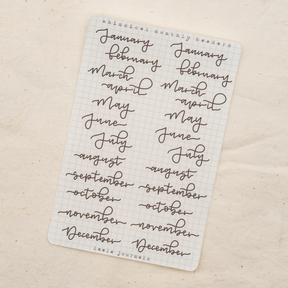 whimsical monthly headers
January January
february february
March March
april april
May May
June June
July July
august august
september september
october october
november november
December December
leele journals